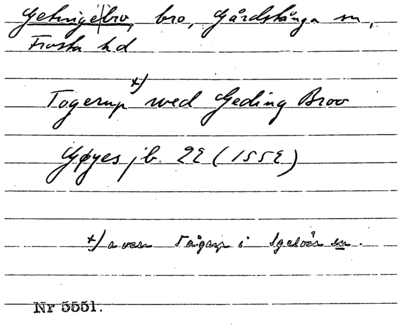 Getingebro, bro, Gårdstånga sn,
Frosta hd
x)
Togerup wed Geding Broo
Gøyes jb. 22 (1552)
x) aven Tågarp i Igelösa sn.
Nr 5551.